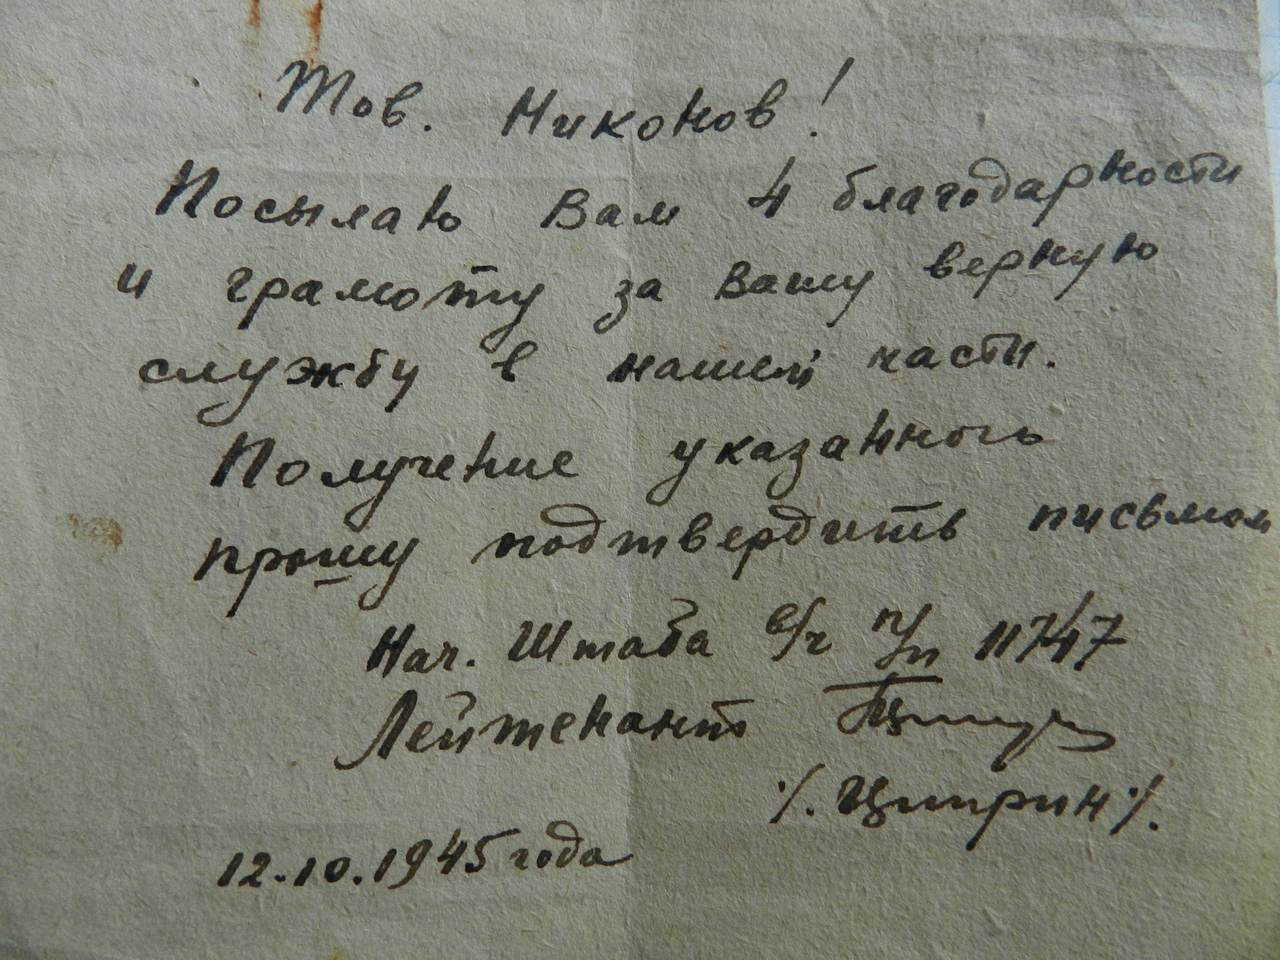 Тов. Никонов!
Посылаю Вам 4 благодарности
и грамоту за Вашу верную
службу в нашей части.
Получение указанного
прошу подтвердить письмом
Нач. Штаба в/ч п/п 11747
Лейтенант
/. Циприн /.
12.10.1945 года